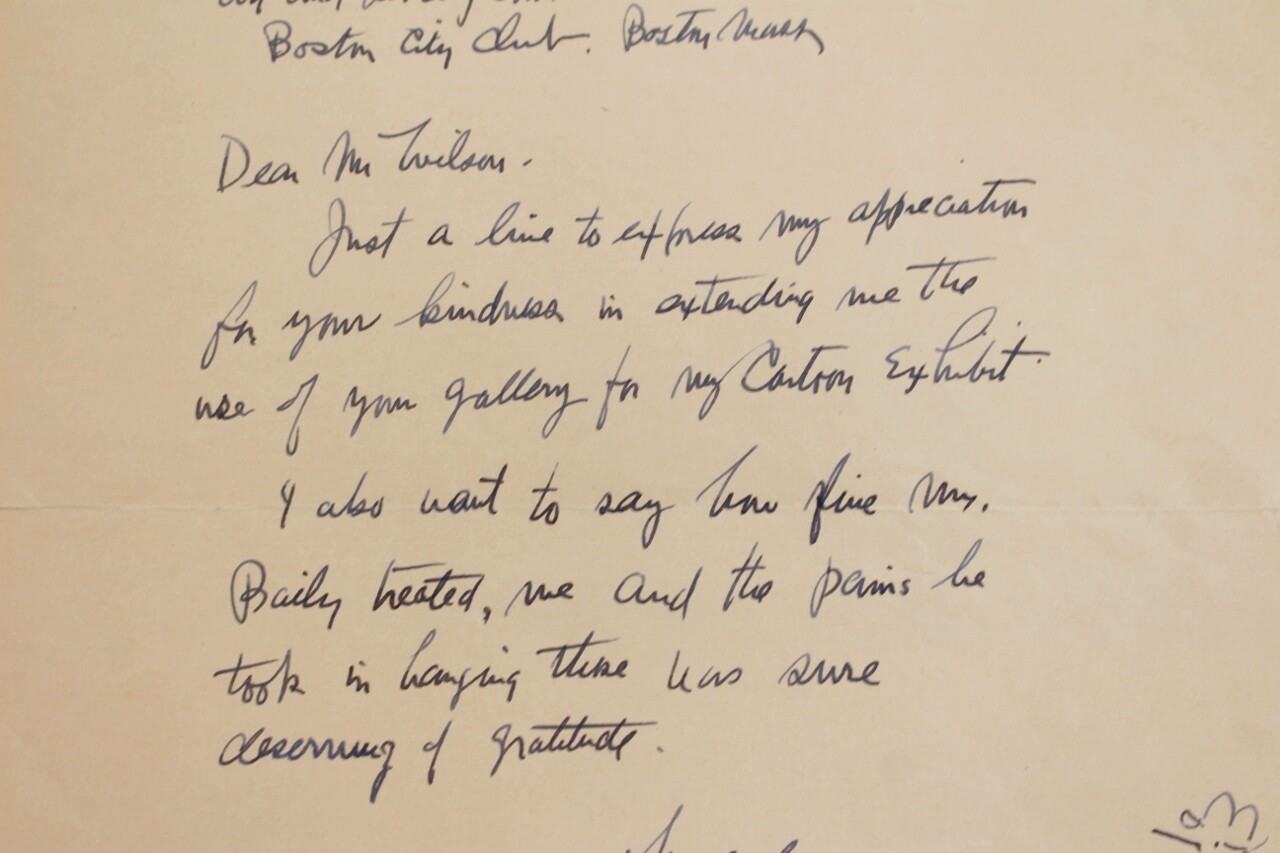 Boston City Club. Boston Mass
Dear Mr Wilson.
Just a line to express my appreciation
for your kindness in extending me the
use of your gallery for my Cartoon Exhibit.
I also want to say how fine Mr.
Baily treated, me and the pains he
took in hanging these was sure
deserving of gratitude.